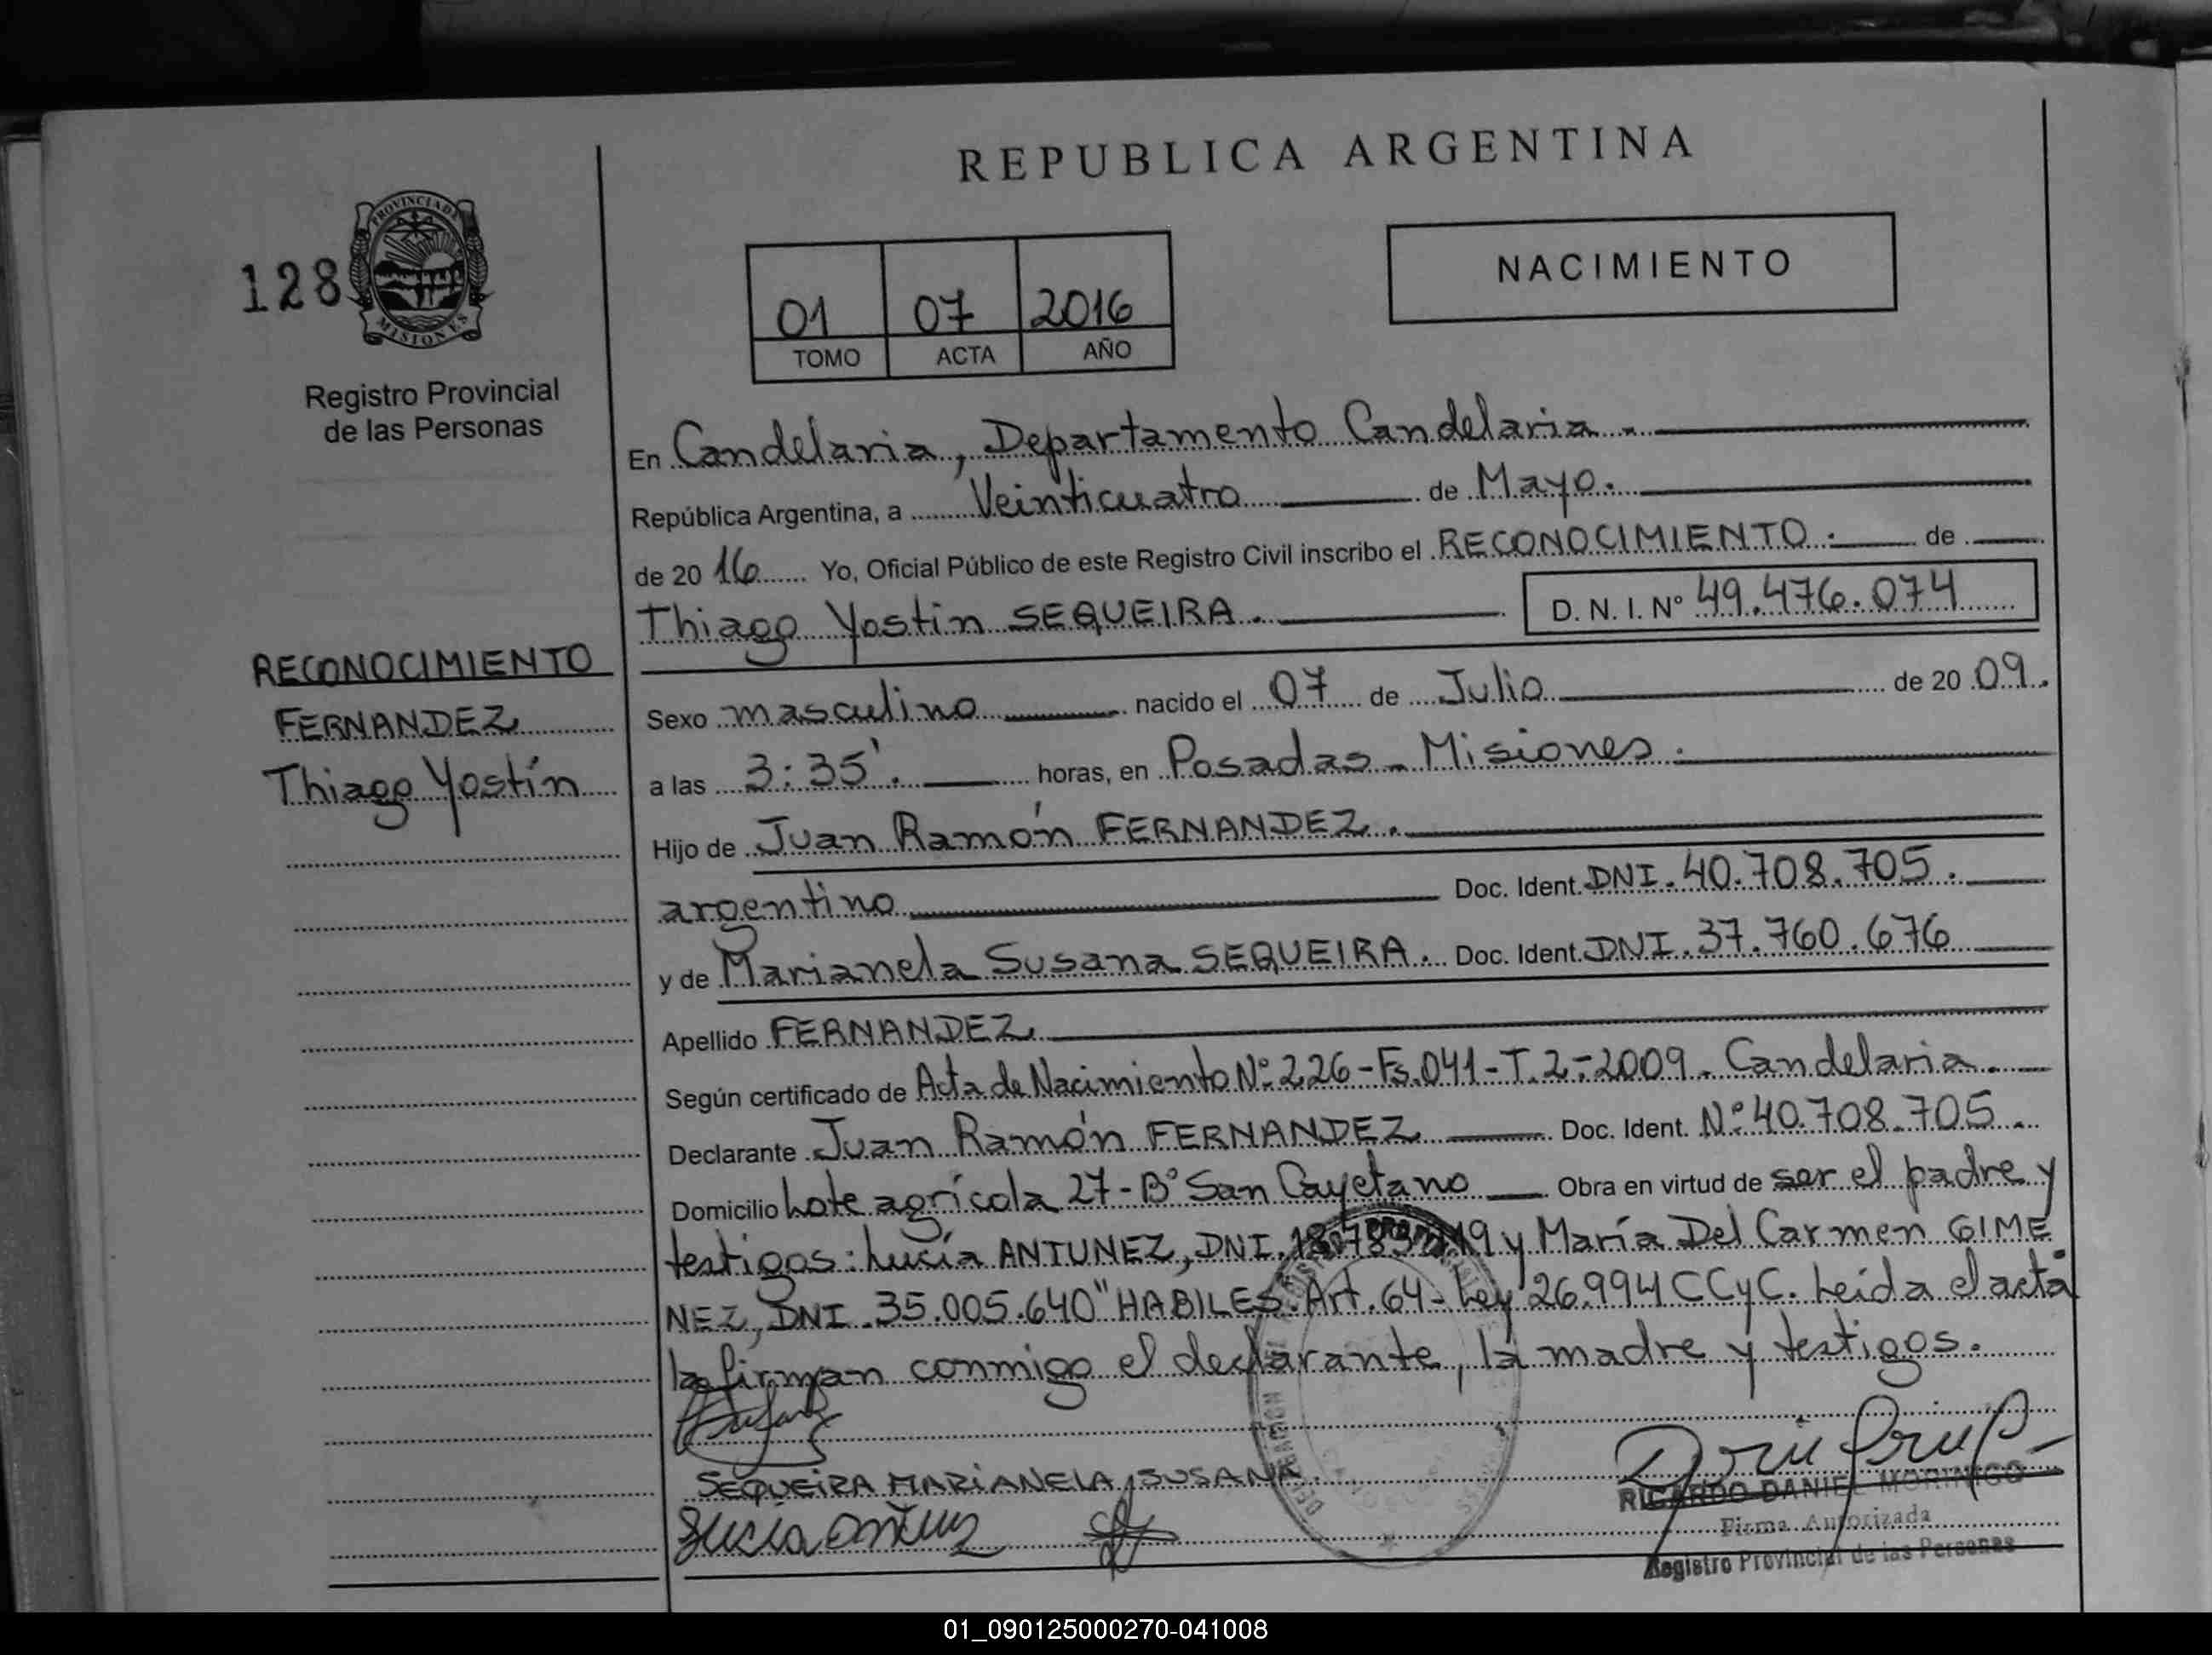 REPUBLICA ARGENTINA
128
PROVINCIA DE
MISIONES
Registro Provincial
de las Personas
01 07 2016
TOMO ACTA AÑO
NACIMIENTO
En Candelaria, Departamento Candelaria.
República Argentina, a Veinticuatro de Mayo.
de 2016 Yo, Oficial Público de este Registro Civil inscribo el RECONOCIMIENTO. de
Thiago Yostin SEQUEIRA. D. N. I. N° 49.476.074
RECONOCIMIENTO
FERNANDEZ
Thiago Yostín
Sexo masculino nacido el 07 de Julio de 2009.
a las 3:35'. horas, en Posadas - Misiones.
Hijo de Juan Ramón FERNANDEZ.
argentino Doc. Ident. DNI. 40.708.705.
y de Marianela Susana SEQUEIRA. Doc. Ident. DNI. 37.760.676
Apellido FERNANDEZ
Según certificado de Acta de Nacimiento N° 226-Fs.041-T.2-2009. Candelaria.
Declarante Juan Ramón FERNANDEZ Doc. Ident. N° 40.708.705.
Domicilio Lote agrícola 27-B° San Cayetano Obra en virtud de ser el padre y
testigos: Lucía ANTUNEZ, DNI. y María Del Carmen GIME
NEZ, DNI. 35.005.640 "HABILES. Art. 64-Ley 26.994 CCyC. Leída el acta
la firman conmigo el declarante, la madre y testigos.
SEQUEiRA MARiANELA SUSANA.
Lucia Antunez
RICARDO DANIEL MORINIGO
Firma Autorizada
Registro Provincial de las Personas
01_090125000270-041008